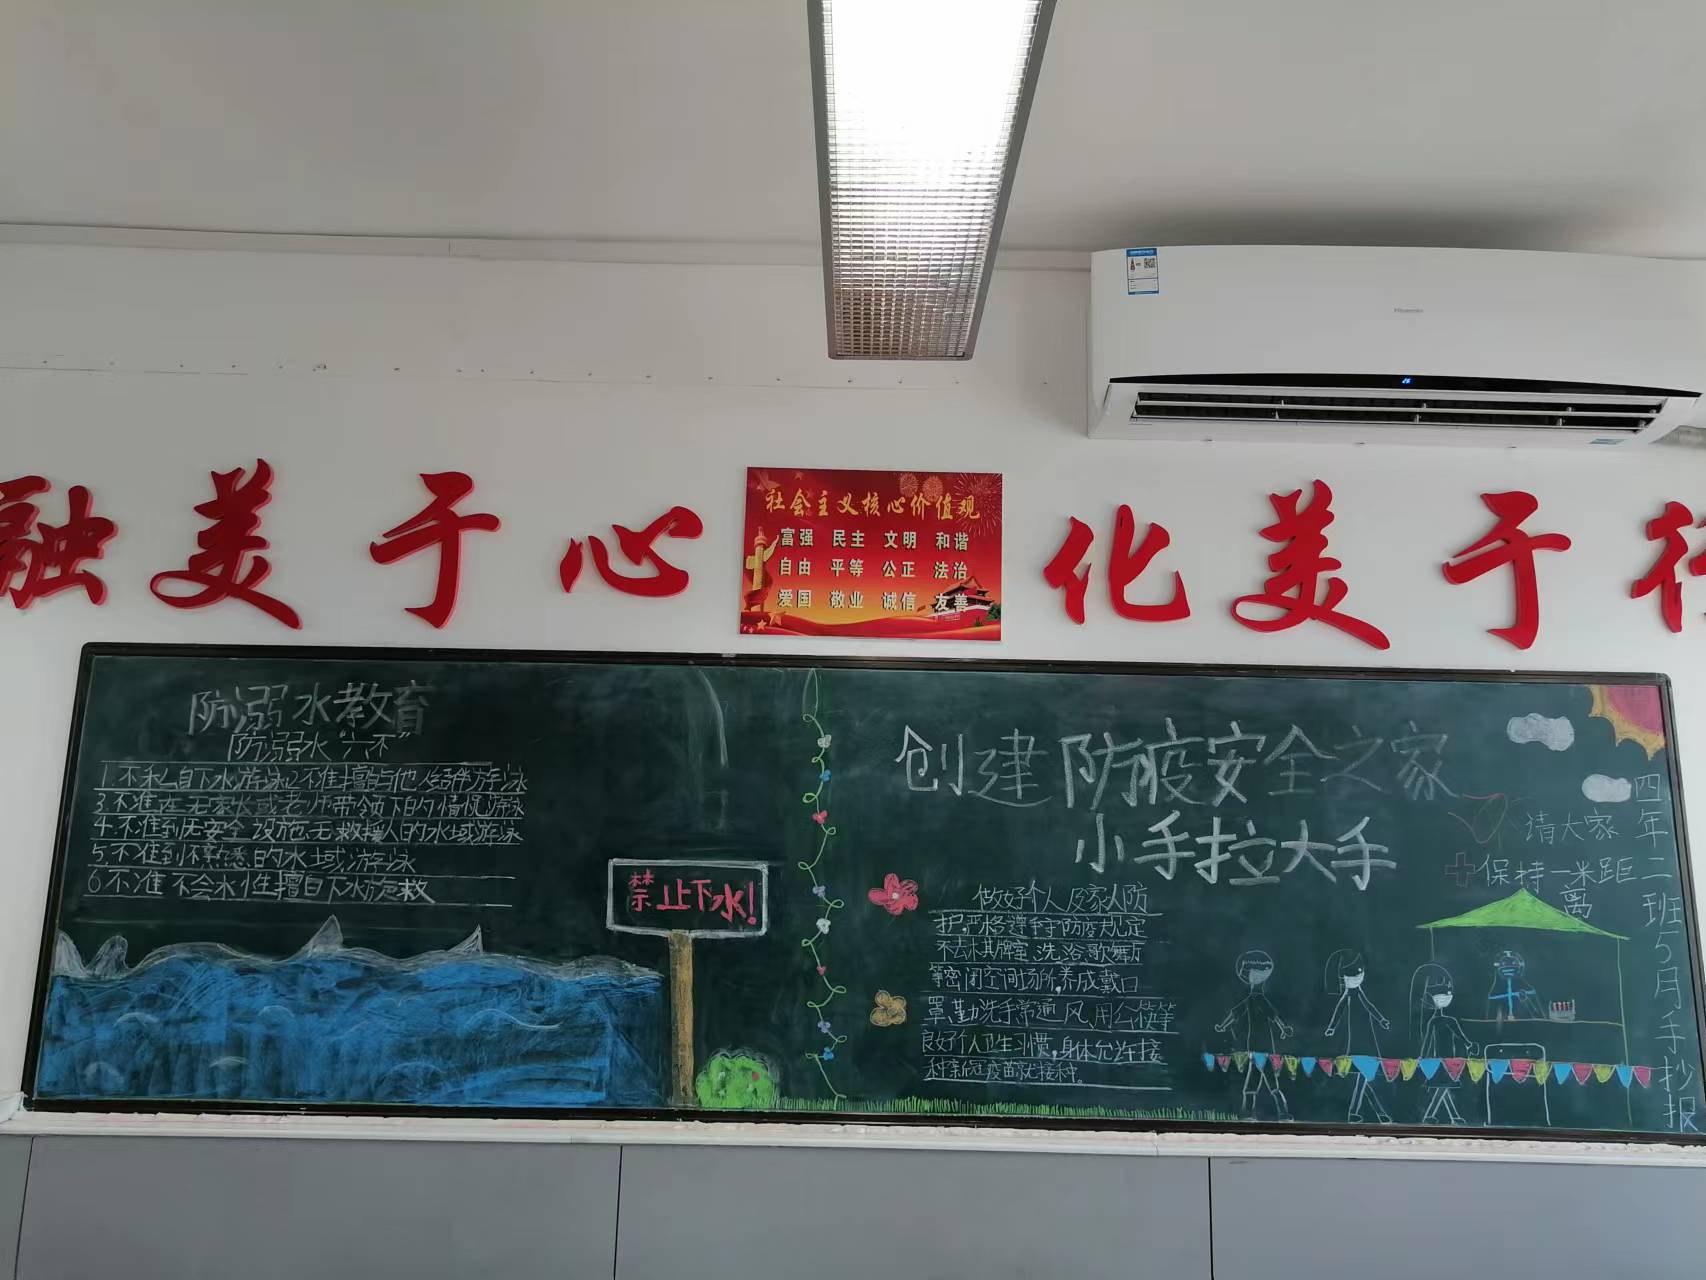 Hisense
融美于心
化美于行
社会主义核心价值观
富强 民主 文明 和谐
自由 平等 公正 法治
爱国 敬业 诚信 友善
防溺水教育
防溺水“六不”
1.不私自下水游泳2.不准擅自与他人结伴游泳
3.不准在无家长或老师带领下的情况游泳
4.不准到无安全设施、无救援人的水域游泳
5.不准到不熟悉的水域游泳
6不准不会水性擅自下水施救
禁止下水!
创建防疫安全之家
小手拉大手
做好个人及家人防
护,严格遵守防疫规定
不去棋牌室、洗浴、歌舞厅
等密闭空间场所,养成戴口
罩,勤洗手常通风,用公筷等
良好个人卫生习惯,身体允许接
种新冠疫苗就接种。
请大家
保持一米距
离
四年二班5月手抄报